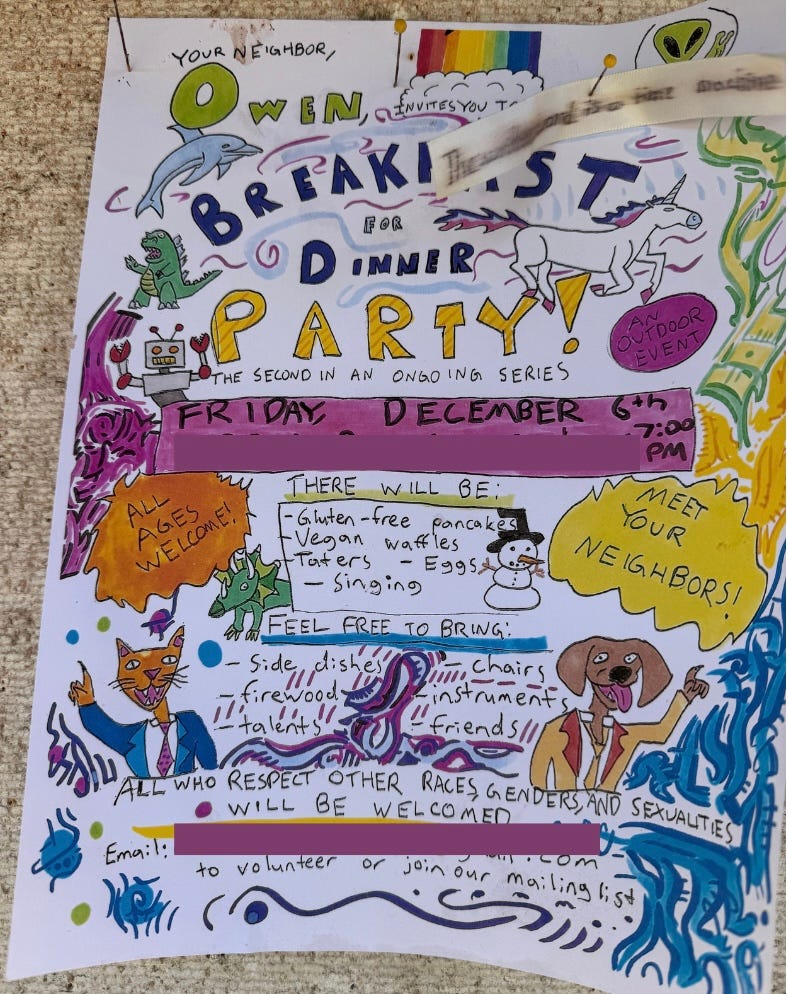 YOUR NEIGHBOR,
OWEN, INVITES YOU TO
BREAKFAST
FOR
DINNER
PARTY!
AN
OUTDOOR
EVENT
THE SECOND IN AN ONGOING SERIES
FRIDAY, DECEMBER 6th
7:00
PM
ALL
AGES
WELCOME!
THERE WILL BE:
- Gluten-free pancakes
- Vegan waffles
- Taters - Eggs
- Singing
MEET
YOUR
NEIGHBORS!
FEEL FREE TO BRING:
- Side dishes - chairs
- firewood - instruments
- talents - friends
ALL WHO RESPECT OTHER RACES, GENDERS, AND SEXUALITIES
WILL BE WELCOMED
Email: .com
to volunteer or join our mailing list